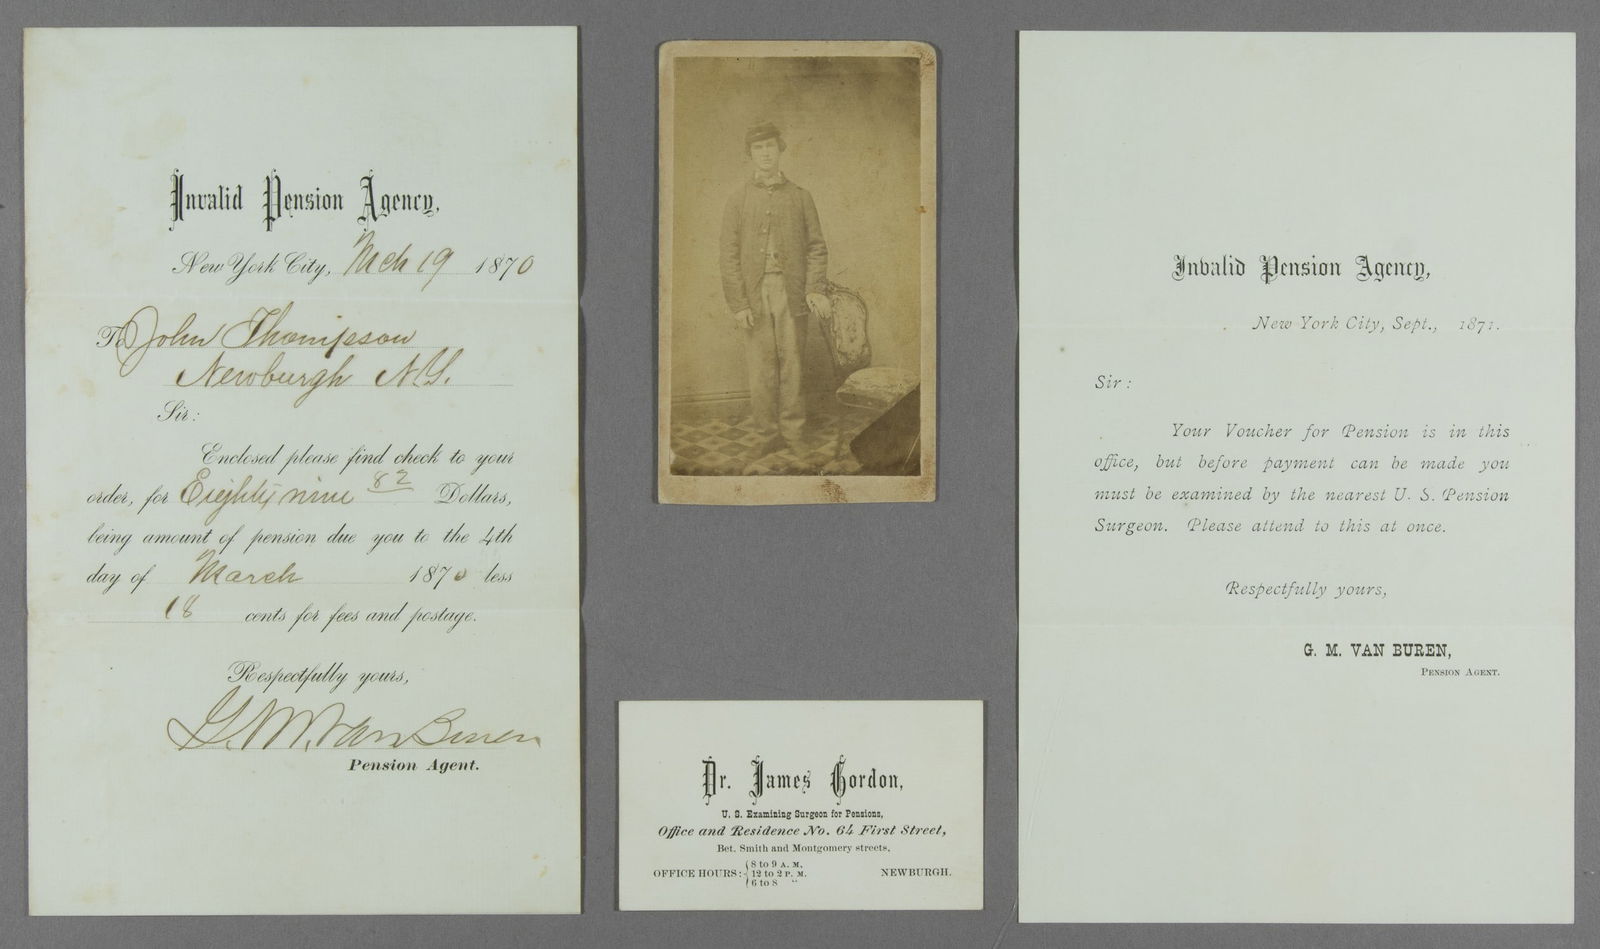 Invalid Pension Agency,
New York City, Mch 19 1870
To John Thompson
Newburgh N.Y.
Sir:
Enclosed please find check to your
order, for Eighty nine 82 Dollars,
being amount of pension due you to the 4th
day of March 1870 less
18 cents for fees and postage.
Respectfully yours,
G. M. Van Buren
Pension Agent.
Dr. James Gordon,
U. S. Examining Surgeon for Pensions,
Office and Residence No. 64 First Street,
Bet. Smith and Montgomery streets.
OFFICE HOURS: 8 to 9 A. M.
12 to 2 P. M.
6 to 8 "
NEWBURGH.
Invalid Pension Agency,
New York City, Sept., 1871.
Sir:
Your Voucher for Pension is in this
office, but before payment can be made you
must be examined by the nearest U. S. Pension
Surgeon. Please attend to this at once.
Respectfully yours,
G. M. VAN BUREN,
PENSION AGENT.